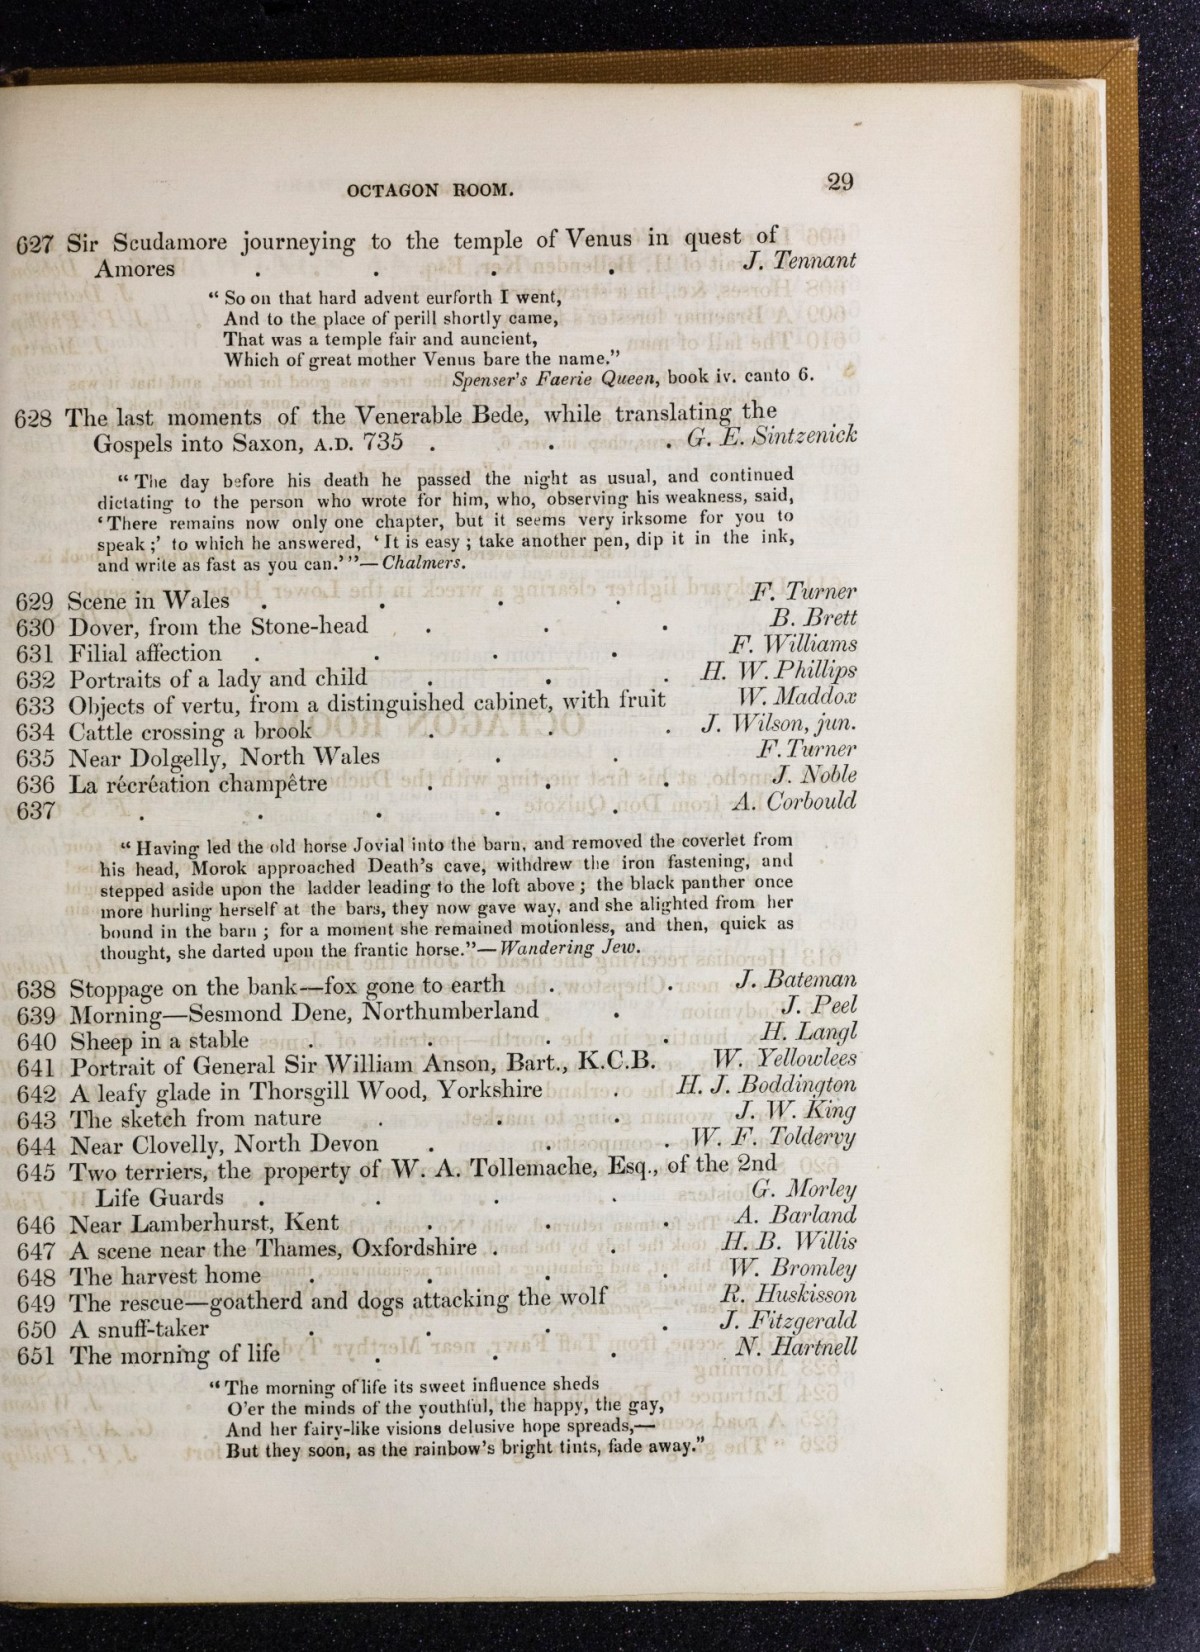 OCTAGON ROOM. 29
627 Sir Scudamore journeying to the temple of Venus in quest of
Amores . . . . J. Tennant
“ So on that hard advent eurforth I went,
And to the place of perill shortly came,
That was a temple fair and auncient,
Which of great mother Venus bare the name.”
Spenser's Faerie Queen, book iv. canto 6.
628 The last moments of the Venerable Bede, while translating the
Gospels into Saxon, A.D. 735 . . . G. E. Sintzenick
“ The day before his death he passed the night as usual, and continued
dictating to the person who wrote for him, who, observing his weakness, said,
‘ There remains now only one chapter, but it seems very irksome for you to
speak ;’ to which he answered, ‘ It is easy ; take another pen, dip it in the ink,
and write as fast as you can.’ ”—Chalmers.
629 Scene in Wales . . . . F. Turner
630 Dover, from the Stone-head . . . B. Brett
631 Filial affection . . . . F. Williams
632 Portraits of a lady and child . . . H. W. Phillips
633 Objects of vertu, from a distinguished cabinet, with fruit W. Maddox
634 Cattle crossing a brook . . . J. Wilson, jun.
635 Near Dolgelly, North Wales . . F. Turner
636 La récréation champêtre . . . J. Noble
637 . . . . . A. Corbould
“ Having led the old horse Jovial into the barn, and removed the coverlet from
his head, Morok approached Death's cave, withdrew the iron fastening, and
stepped aside upon the ladder leading to the loft above ; the black panther once
more hurling herself at the bars, they now gave way, and she alighted from her
bound in the barn ; for a moment she remained motionless, and then, quick as
thought, she darted upon the frantic horse.”—Wandering Jew.
638 Stoppage on the bank—fox gone to earth . . J. Bateman
639 Morning—Sesmond Dene, Northumberland . J. Peel
640 Sheep in a stable . . . . H. Langl
641 Portrait of General Sir William Anson, Bart., K.C.B. W. Yellowlees
642 A leafy glade in Thorsgill Wood, Yorkshire . H. J. Boddington
643 The sketch from nature . . . J. W. King
644 Near Clovelly, North Devon . . . W. F. Toldervy
645 Two terriers, the property of W. A. Tollemache, Esq., of the 2nd
Life Guards . . . . G. Morley
646 Near Lamberhurst, Kent . . . A. Barland
647 A scene near the Thames, Oxfordshire . . H. B. Willis
648 The harvest home . . . . W. Bromley
649 The rescue—goatherd and dogs attacking the wolf R. Huskisson
650 A snuff-taker . . . . J. Fitzgerald
651 The morning of life . . . N. Hartnell
“ The morning of life its sweet influence sheds
O'er the minds of the youthful, the happy, the gay,
And her fairy-like visions delusive hope spreads,—
But they soon, as the rainbow's bright tints, fade away.”